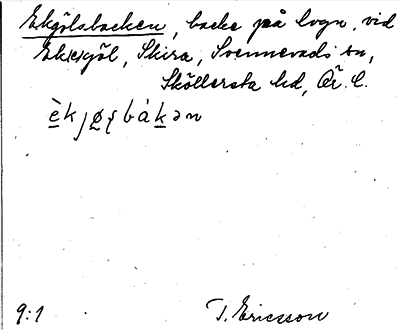 Ekgölsbacken, backe på logn. vid
Ek(e)göl, Skira, Svennevads sn,
Sköllersta hd, Ör. l.
è̲kjø̲ʂbák̲ən
9:1 T. Ericsson